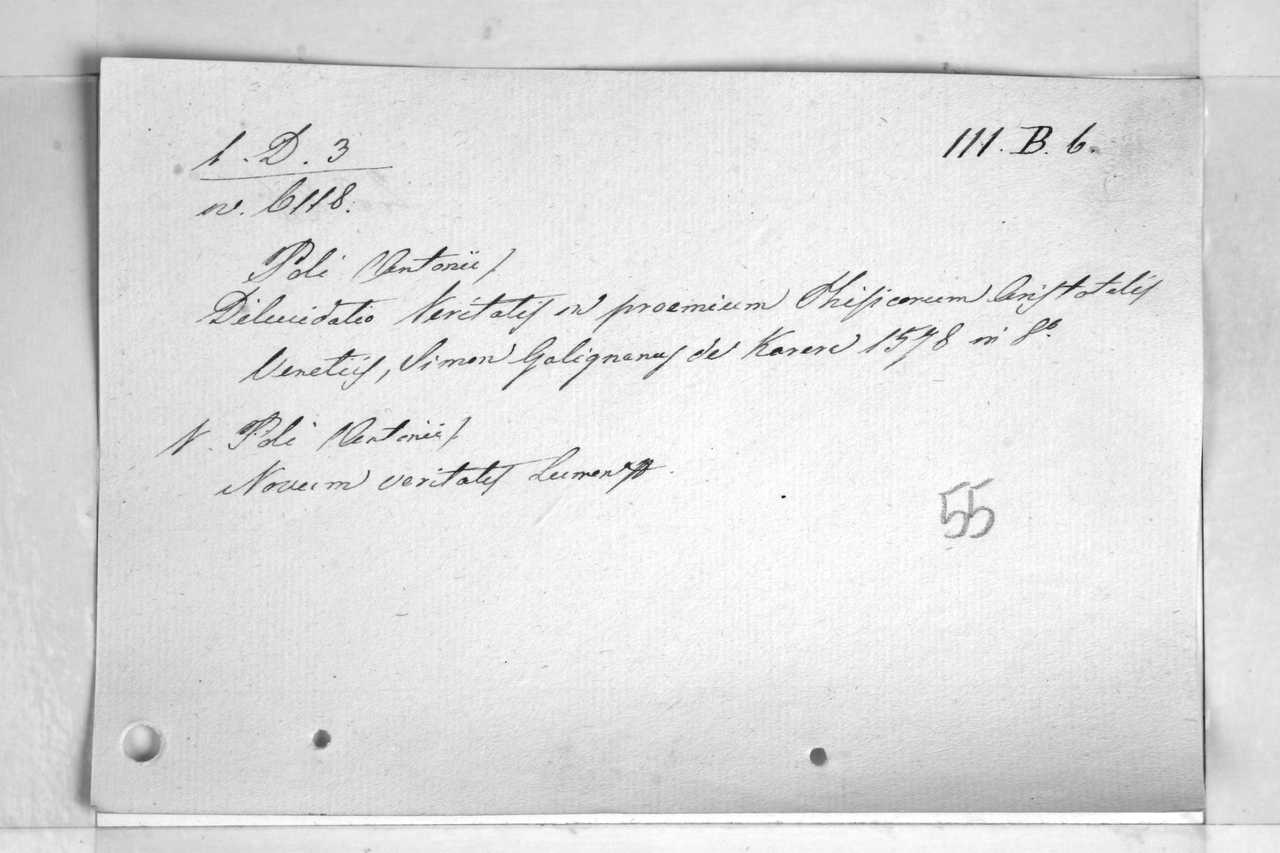 1. D. 3
III. B. 6.
n. 6118.
Poli (Antonii)
Dilucidatio Veritatis in proemium Phisicorum Aristotelis
Venetiis, Simon Galignanus de Karera 1578 in 8º
N. Poli (Antonii)
Novum veritatis Lumen
55